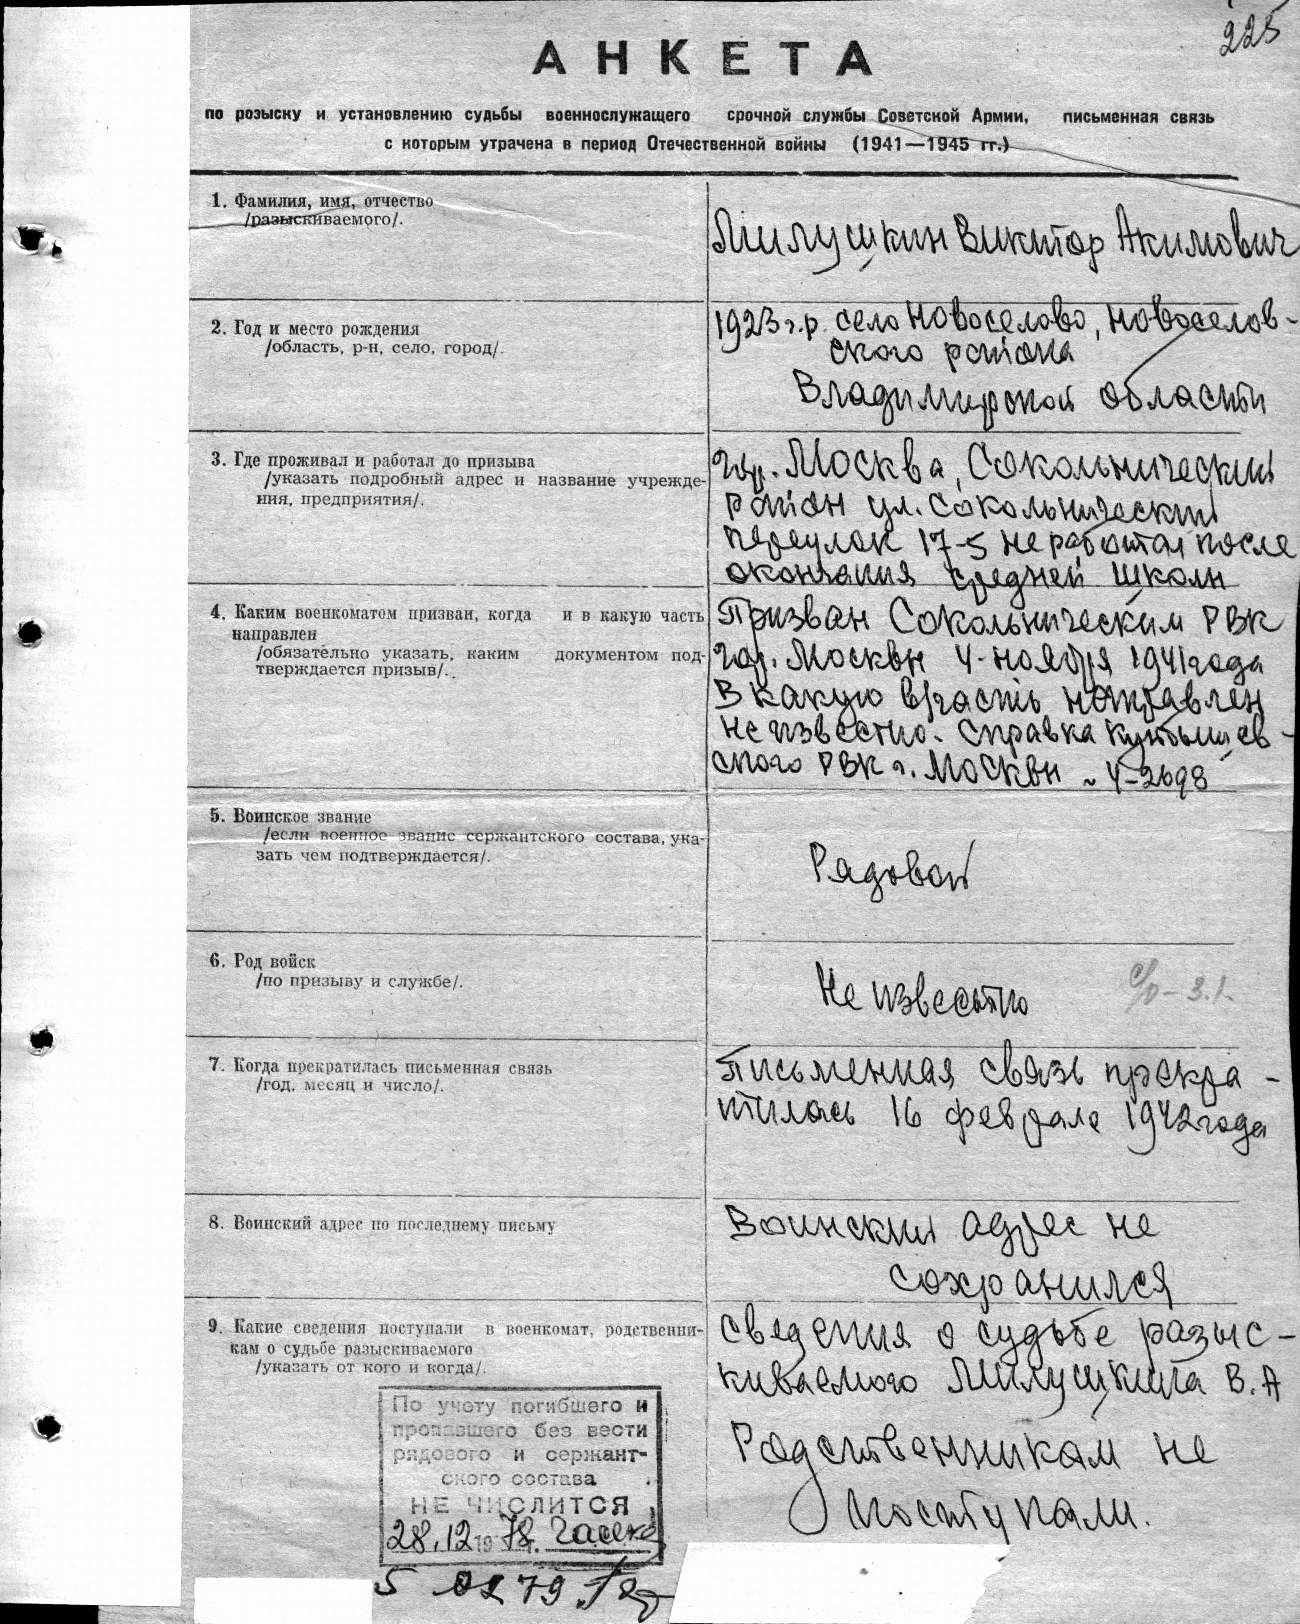 225
АНКЕТА
по розыску и установлению судьбы военнослужащего срочной службы Советской Армии, письменная связь
с которым утрачена в период Отечественной войны (1941—1945 гг.)
1. Фамилия, имя, отчество
/разыскиваемого/.
Милушкин Виктор Акимович
2. Год и место рождения
/область, р-н, село, город/.
1923 г.р. село Новоселово, Новоселов-
ского района
Владимирской области
3. Где проживал и работал до призыва
/указать подробный адрес и название учрежде-
ния, предприятия/.
гор. Москва, Сокольнический
район ул. Сокольнический
переулок 17-5 не работал после
окончания средней школы
4. Каким военкоматом призван, когда и в какую часть
направлен
/обязательно указать, каким документом под-
тверждается призыв/.
Призван Сокольническим РВК
гор. Москвы 4 ноября 1941 года
В какую в/часть направлен
не известно. Справка Куйбышев-
ского РВК г. Москвы
5. Воинское звание
/если военное звание сержантского состава, ука-
зать чем подтверждается/.
Рядовой
6. Род войск
/по призыву и службе/.
Не известно
7. Когда прекратилась письменная связь
/год, месяц и число/.
Письменная связь прекра-
тилась 16 февраля 1942 года
8. Воинский адрес по последнему письму
Воинский адрес не
сохранился
9. Какие сведения поступали в военкомат, родственни-
кам о судьбе разыскиваемого
/указать от кого и когда/.
Сведения о судьбе разыс-
киваемого Милушкина В.А
Родственникам не
поступали.
По учету погибшего и
пропавшего без вести
рядового и сержант-
ского состава
НЕ ЧИСЛИТСЯ
28.12 1978 г.
5 02 79